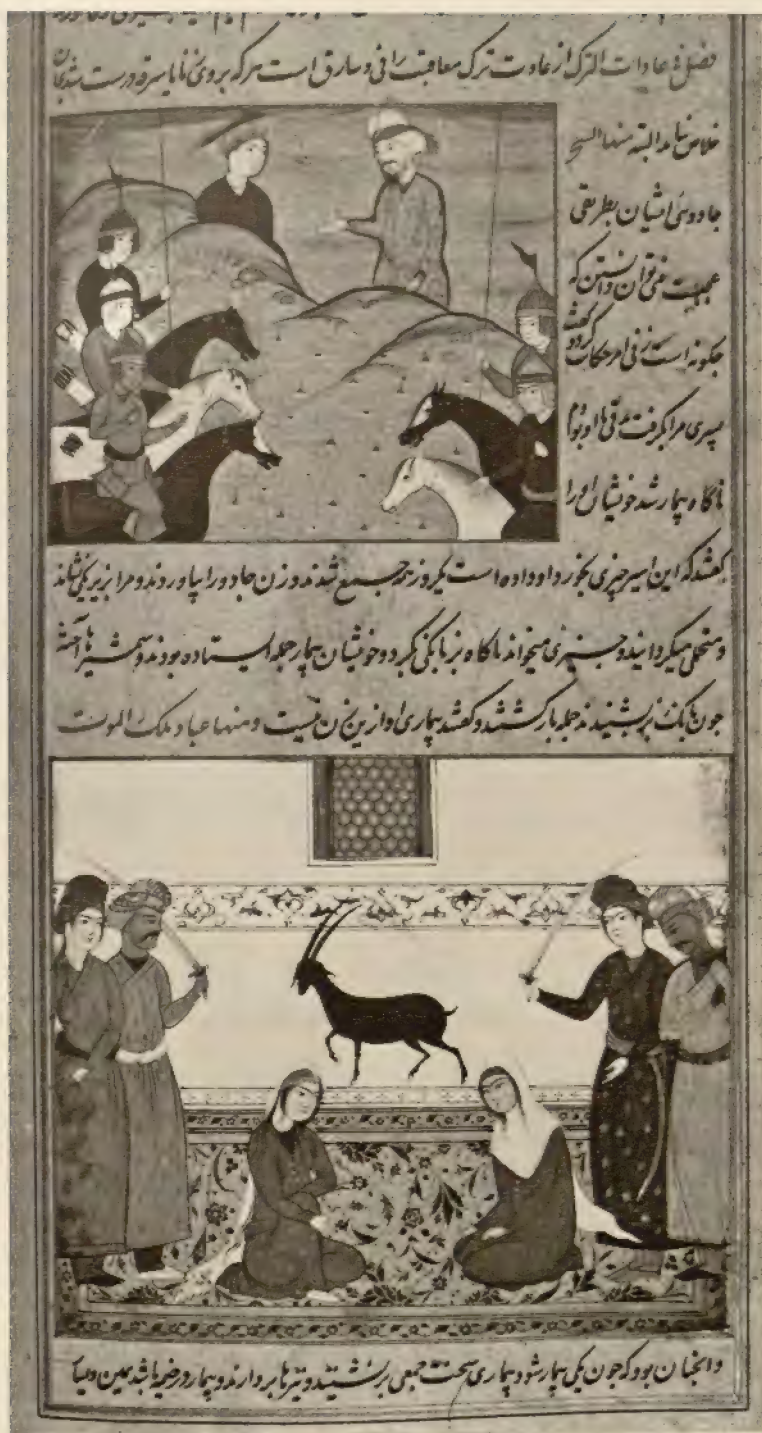 فصل فی عادات الترک از عادت ترک معاقبت زانی و سارق است هر که بروی زنا یا سرقه درست شد بجان
خلاص نیابد البته منها السحر
جادوئی ایشان بطریقی
عجبیست نمی توان دانستن که
چگونه است زنی امر حکایت کرد و گفت
پسری مرا بگرفت مدتی با او بودم
ناگاه بیمار شد خویشان او را
گفتند که این اسیر چیزی بخورد او داده است یکروز همه جمیع شدند و زن جادو را بیاوردند و مرا بزیر یکی نشاند
و منخلی میگردانید و چیزی میخواند ناگاه بز بانکی کرد و خویشان بیمار جمله ایستاده بودند و شمشیرها آخته
جون بانک بز بشنیدند جمله بازگشتند و گفتند بیماری او ازین زن نیست و منها عباد ملک الموت
و انجنان بود که جون یکی بیمار شود بیماری سخت جمعی برنشینند و تیرها بردارند و بیمار در خیمه باشد بمین و